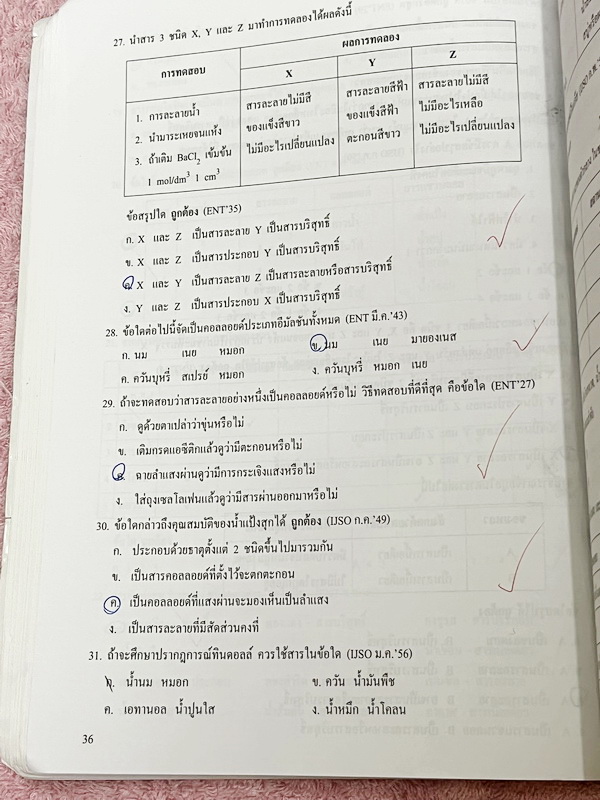 27. นำสาร 3 ชนิด X, Y และ Z มาทำการทดลองได้ผลดังนี้
การทดสอบ
ผลการทดลอง
X Y Z
1. การละลายน้ำ สารละลายไม่มีสี สารละลายสีฟ้า สารละลายไม่มีสี
2. นำมาระเหยจนแห้ง ของแข็งสีขาว ของแข็งสีฟ้า ไม่มีอะไรเหลือ
3. ถ้าเติม BaCl₂ เข้มข้น ไม่มีอะไรเปลี่ยนแปลง ตะกอนสีขาว ไม่มีอะไรเปลี่ยนแปลง
1 mol/dm³ 1 cm³
ข้อสรุปใด ถูกต้อง (ENT'35)
ก. X และ Z เป็นสารละลาย Y เป็นสารบริสุทธิ์
ข. X และ Z เป็นสารประกอบ Y เป็นสารบริสุทธิ์
ค. X และ Y เป็นสารละลาย Z เป็นสารละลายหรือสารบริสุทธิ์
ง. Y และ Z เป็นสารประกอบ X เป็นสารบริสุทธิ์
28. ข้อใดต่อไปนี้จัดเป็นคอลลอยด์ประเภทอีมัลชันทั้งหมด (ENT มี.ค.'43)
ก. นม เนย หมอก ข. นม เนย มายองเนส
ค. ควันบุหรี่ สเปรย์ หมอก ง. ควันบุหรี่ หมอก เนย
29. ถ้าจะทดสอบว่าสารละลายอย่างหนึ่งเป็นคอลลอยด์หรือไม่ วิธีทดสอบที่ดีที่สุด คือข้อใด (ENT'27)
ก. ดูด้วยตาเปล่าว่าขุ่นหรือไม่
ข. เติมกรดแอซีติกแล้วดูว่ามีตะกอนหรือไม่
ค. ฉายลำแสงผ่านดูว่ามีการกระเจิงแสงหรือไม่
ง. ใส่ถุงเซลโลเฟนแล้วดูว่ามีสารผ่านออกมาหรือไม่
30. ข้อใดกล่าวถึงคุณสมบัติของน้ำแป้งสุกได้ ถูกต้อง (IJSO ก.ค.'49)
ก. ประกอบด้วยธาตุตั้งแต่ 2 ชนิดขึ้นไปมารวมกัน
ข. เป็นสารคอลลอยด์ที่ตั้งไว้จะตกตะกอน
ค. เป็นคอลลอยด์ที่แสงผ่านจะมองเห็นเป็นลำแสง
ง. เป็นสารละลายที่มีสัดส่วนคงที่
31. ถ้าจะศึกษาปรากฏการณ์ทินดอลล์ ควรใช้สารในข้อใด (IJSO ม.ค.'56)
ก. น้ำนม หมอก ข. ควัน น้ำมันพืช
ค. เอทานอล น้ำปูนใส ง. น้ำหมึก น้ำโคลน
36